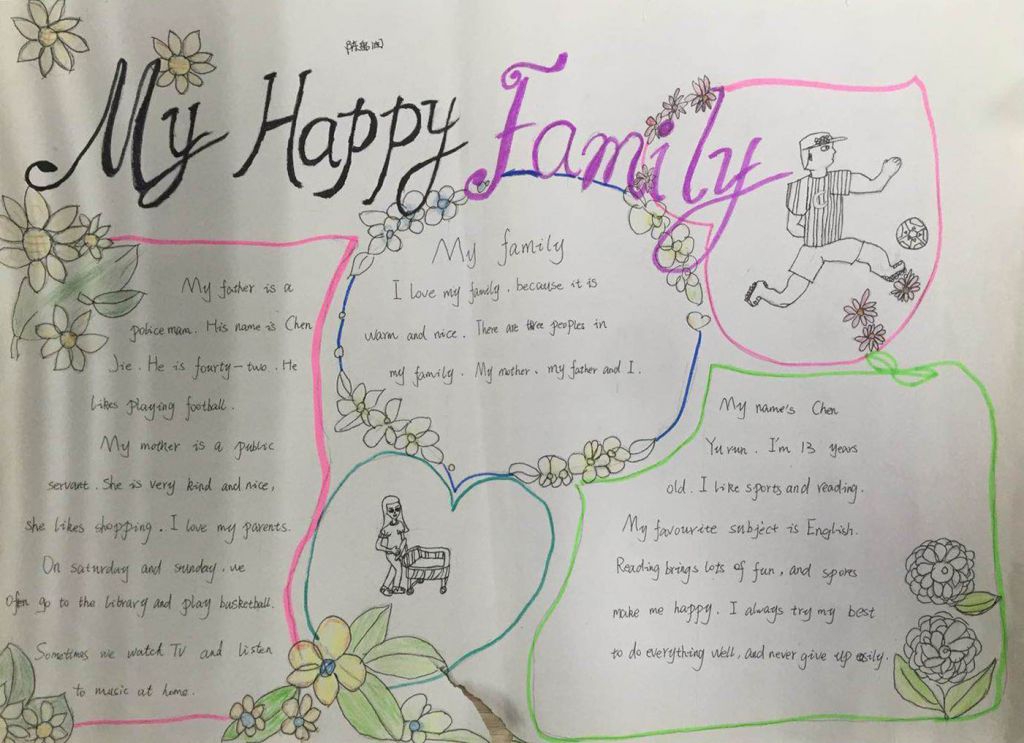 My Happy Family
My father is a
policemam. His name is Chen
Jie. He is fourty-two. He
likes playing football.
My mother is a public
servant. She is very kind and nice,
she likes shopping. I love my parents.
On saturday and sunday, we
often go to the library and play basketball.
Sometimes we watch TV and listen
to music at home.
My family
I love my family, because it is
warm and nice. There are three peoples in
my family. My mother, my father and I.
My name's Chen
Yurun. I'm 13 years
old. I like sports and reading.
My favourite subject is English.
Reading brings lots of fun, and sports
make me happy. I always try my best
to do everything well, and never give up easily.